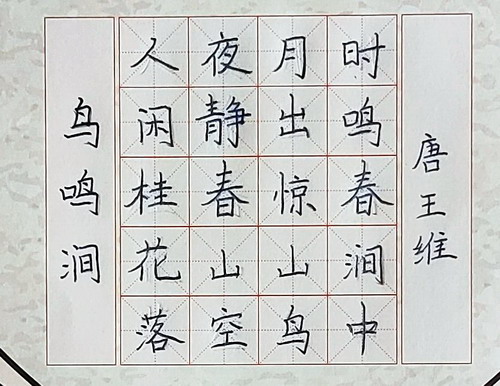 鸟鸣涧
人闲桂花落
夜静春山空
月出惊山鸟
时鸣春涧中
唐王维